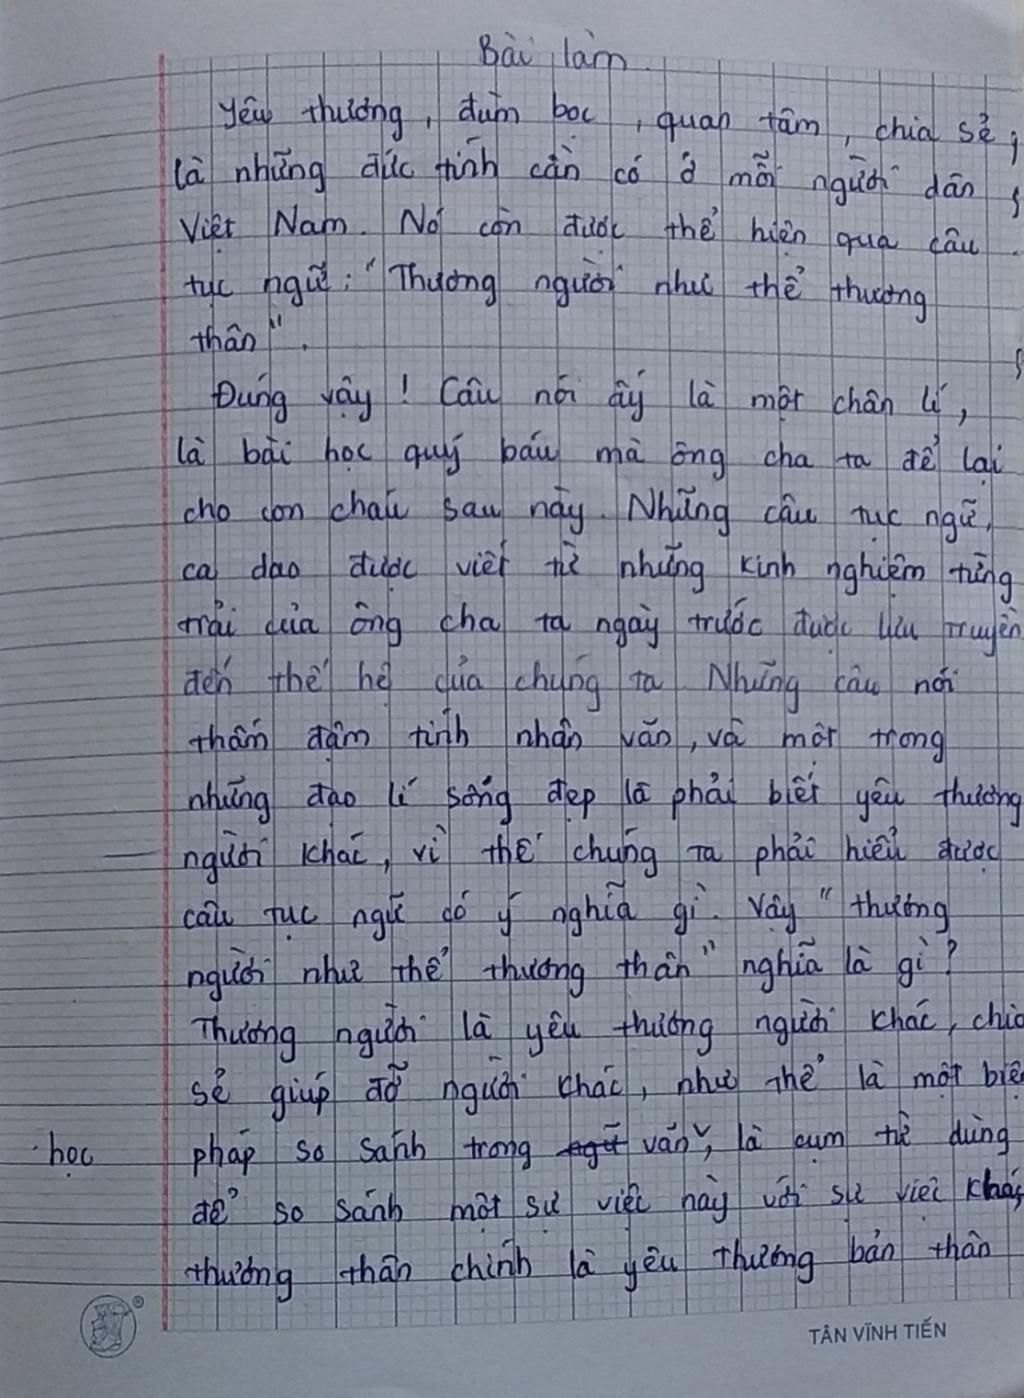 Bài làm.
Yêu thương, đùm bọc, quan tâm, chia sẻ,
là những đức tính cần có ở mỗi người dân
Việt Nam. Nó còn được thể hiện qua câu
tục ngữ: "Thương người như thể thương
thân".
Đúng vậy! Câu nói ấy là một chân lí,
là bài học quý báu mà ông cha ta để lại
cho con cháu sau này. Những câu tục ngữ,
ca dao được viết từ những kinh nghiệm từng
trải của ông cha ta ngày trước được lưu truyền
đến thế hệ của chúng ta. Những câu nói
thấm đậm tính nhân văn, và một trong
những đạo lí sống đẹp là phải biết yêu thương
người khác, vì thế chúng ta phải hiểu được
câu tục ngữ có ý nghĩa gì. Vậy "thương
người như thể thương thân" nghĩa là gì?
Thương người là yêu thương người khác, chia
sẻ giúp đỡ người khác, như thể là một biện
học
pháp so sánh trong văn, là cụm từ dùng
để so sánh một sự việc này với sự việc khác,
thương thân chính là yêu thương bản thân
TÂN VĨNH TIẾN